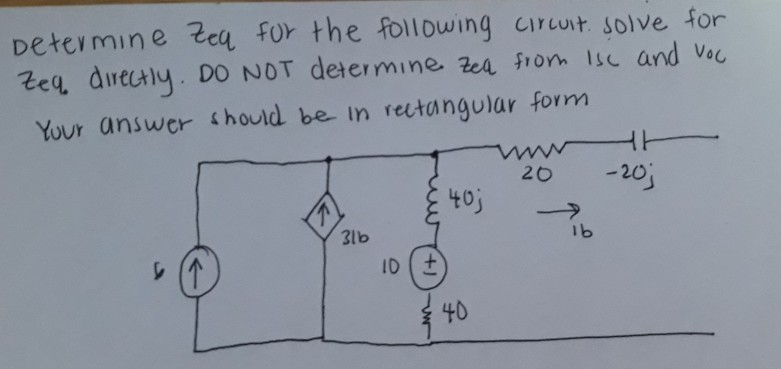 Determine Zeq for the following circuit. solve for
Zeq directly. DO NOT determine Zeq from Isc and Voc
Your answer should be in rectangular form
20
-20j
40j
Ib
3Ib
10
40